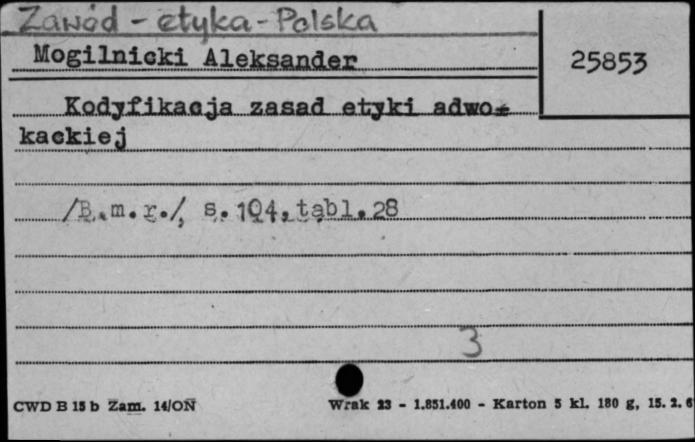 Zawód - etyka - Polska
Mogilnicki Aleksander
25853
Kodyfikacja zasad etyki adwo-
kackiej
/B.m.r./, s. 104, tabl. 28
3
CWD B 15 b Zam. 14/ON
Wrak 23 - 1.851.400 - Karton 5 kl. 180 g, 15. 2. 6